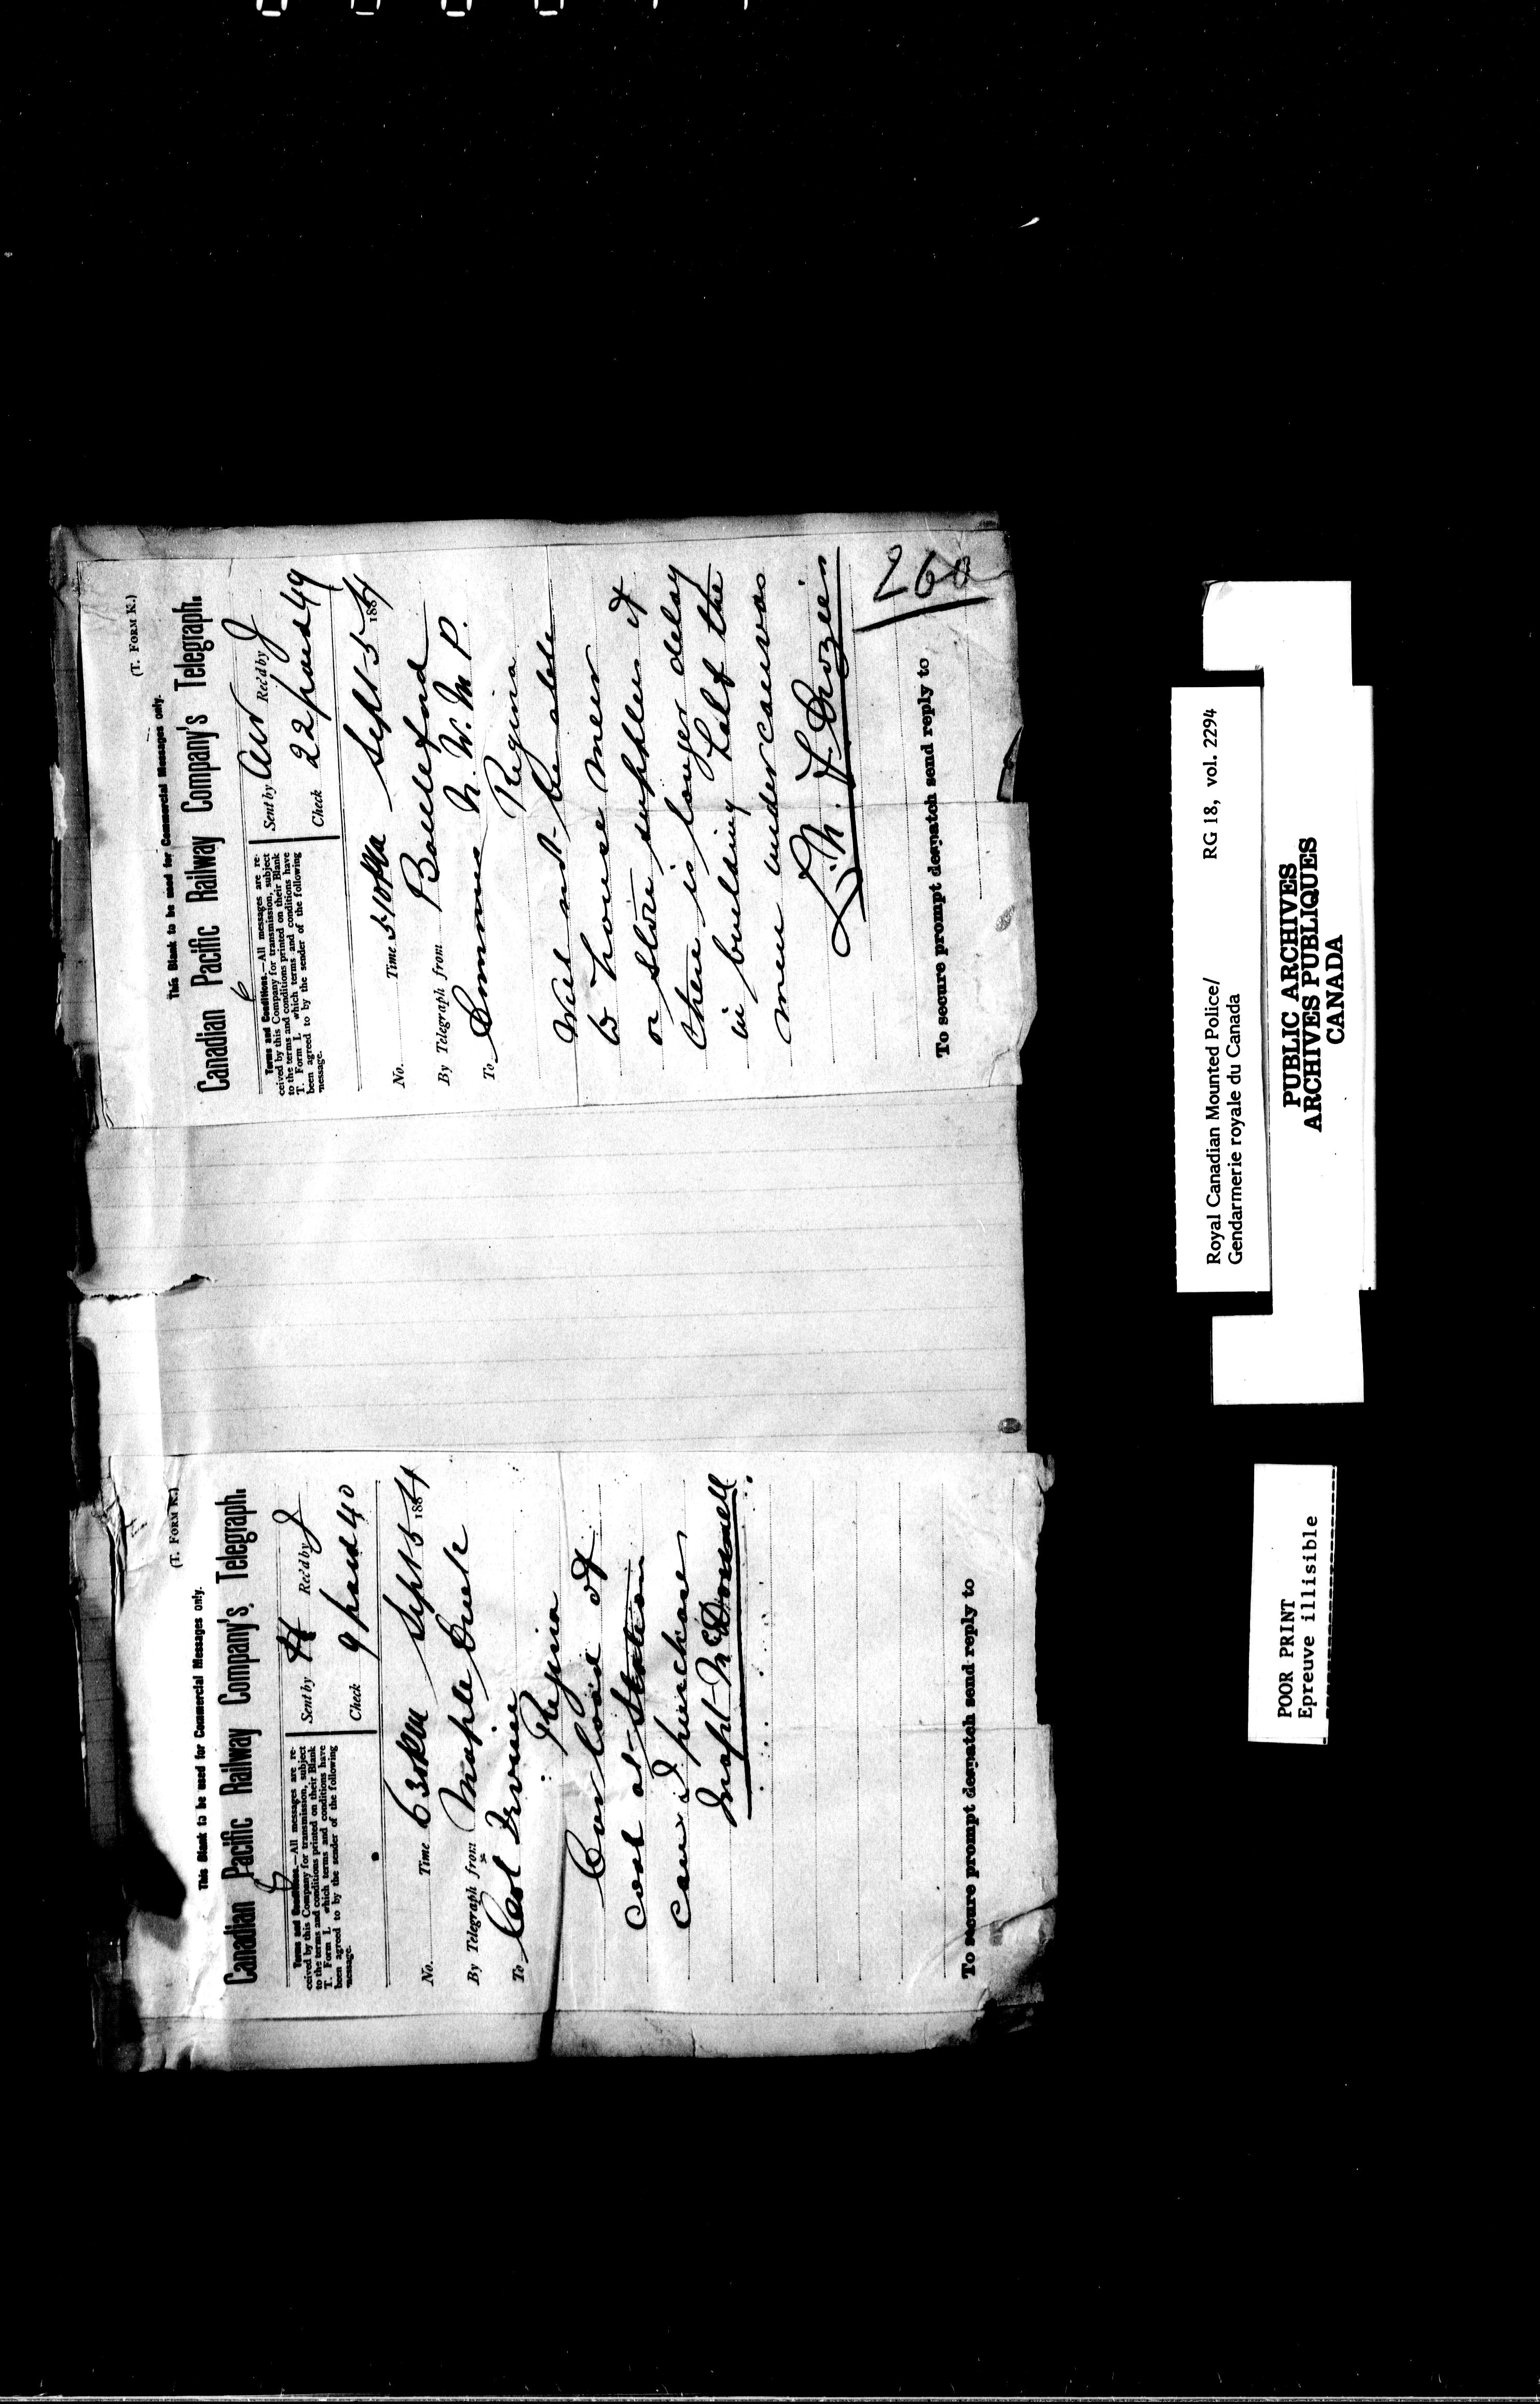 (T. FORM K.)
This Blank to be used for Commercial Messages only.
Canadian Pacific Railway Company's Telegraph.
Terms and Conditions.—All messages are re-
ceived by this Company for transmission, subject
to the terms and conditions printed on their Blank
T. Form I. which terms and conditions have
been agreed to by the sender of the following
message.
Sent by H Rec'd by J
Check 9 paid 40
No. Time 630pm Sept 5 1884
By Telegraph from Maple Creek
To Col Irvine
Regina
Car load of
coal at station
can I purchase
Inspt McDonnell
To secure prompt despatch send reply to
(T. FORM K.)
This Blank to be used for Commercial Messages only.
Canadian Pacific Railway Company's Telegraph.
6
Terms and Conditions.—All messages are re-
ceived by this Company for transmission, subject
to the terms and conditions printed on their Blank
T. Form I. which terms and conditions have
been agreed to by the sender of the following
message.
Sent by Rec'd by J
Check 22 paid 49
No. Time 510pm Sept 5 1884
By Telegraph from Battleford
To Commr N. W. M P.
Regina
Will not be able
to house men
or store supplies if
there is longer delay
in building half the
men under canvas
L. N. F. Crozier
To secure prompt despatch send reply to
Royal Canadian Mounted Police/ RG 18, vol. 2294
Gendarmerie royale du Canada
PUBLIC ARCHIVES
ARCHIVES PUBLIQUES
CANADA
POOR PRINT
Epreuve illisible